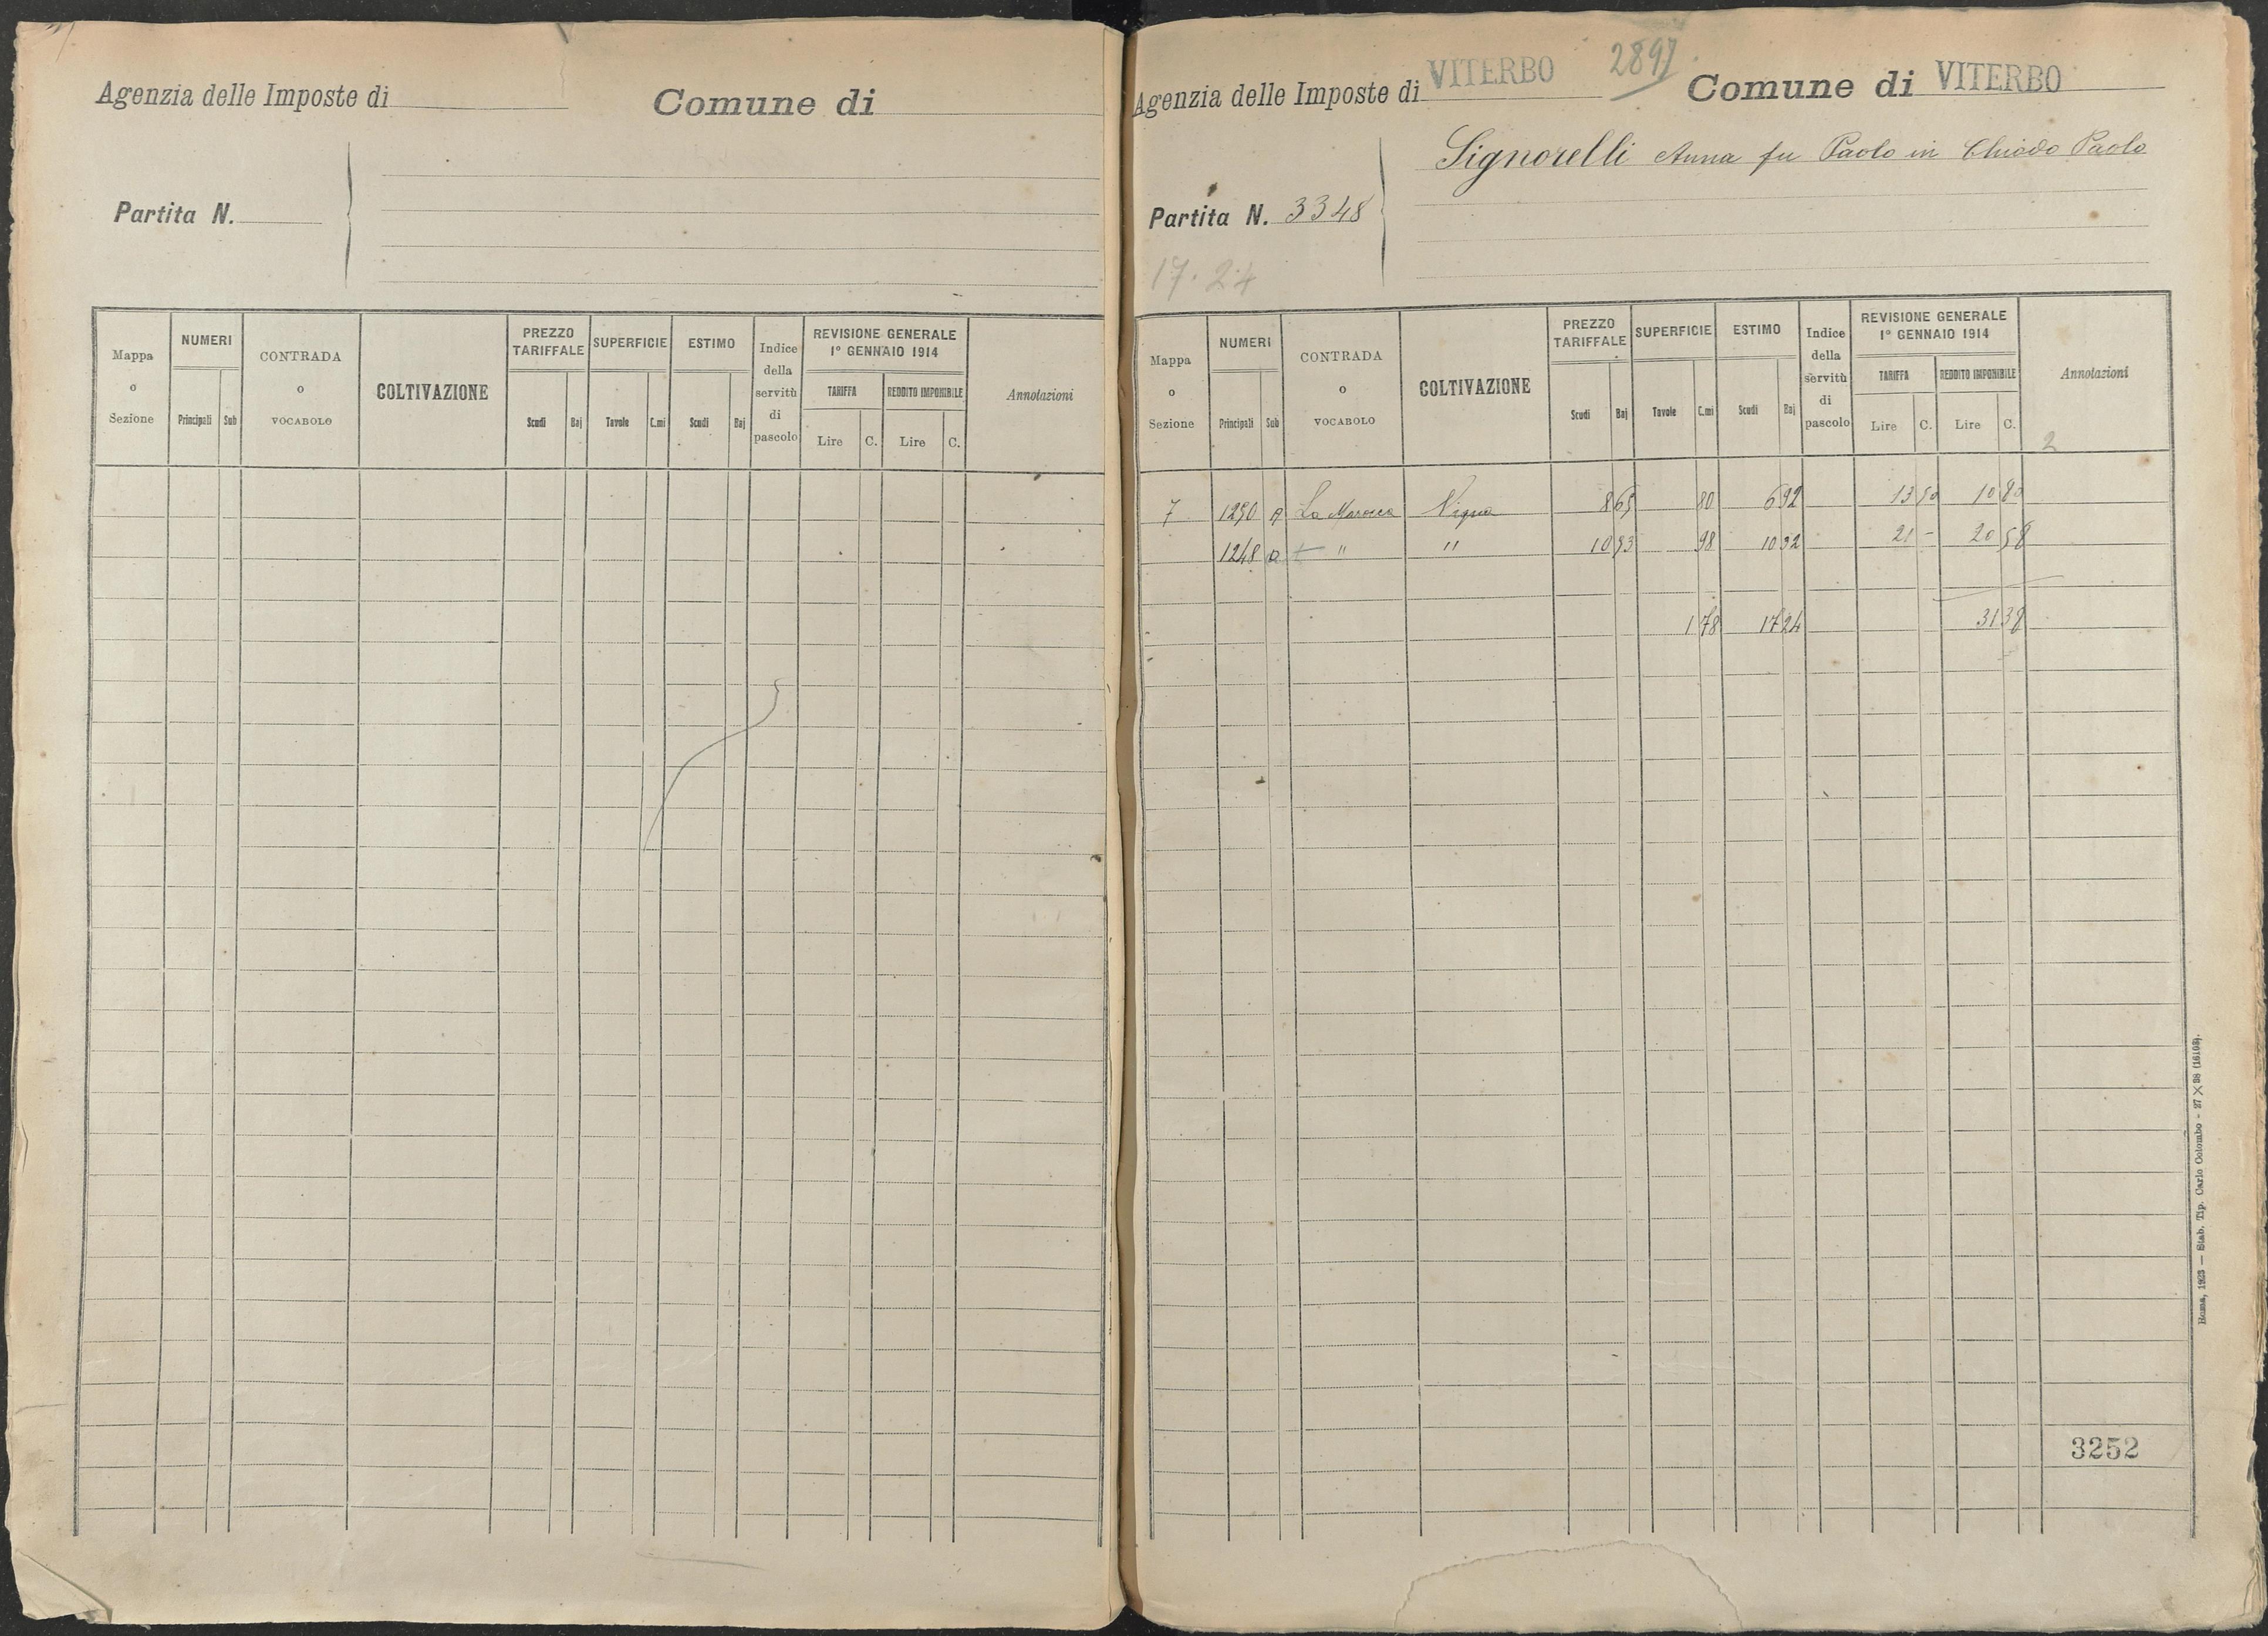 Agenzia delle Imposte di
Comune di
Partita N.
Mappa o Sezione
NUMERI
Principali
Sub
CONTRADA o VOCABOLO
COLTIVAZIONE
PREZZO TARIFFALE
Scudi
Baj
SUPERFICIE
Tavole
C.mi
ESTIMO
Scudi
Baj
Indice della servitù di pascolo
REVISIONE GENERALE
1° GENNAIO 1914
TARIFFA
Lire
C.
REDDITO IMPONIBILE
Lire
C.
Annotazioni
Agenzia delle Imposte di VITERBO
2897
Comune di VITERBO
Signorelli Anna fu Paolo in Chiodo Paolo
Partita N. 3348
17.24
Mappa o Sezione
NUMERI
Principali
Sub
CONTRADA o VOCABOLO
COLTIVAZIONE
PREZZO TARIFFALE
Scudi
Baj
SUPERFICIE
Tavole
C.mi
ESTIMO
Scudi
Baj
Indice della servitù di pascolo
REVISIONE GENERALE
1° GENNAIO 1914
TARIFFA
Lire
C.
REDDITO IMPONIBILE
Lire
C.
Annotazioni
2
7 1290 A La Vigna 8 65 80 6 92 13 50 10 80
1248 a " " 10 53 98 10 32 21 - 20 58
1 78 17 24 31 38
3252
Roma, 1923 — Stab. Tip. Carlo Colombo - 27 X 38 (16108).